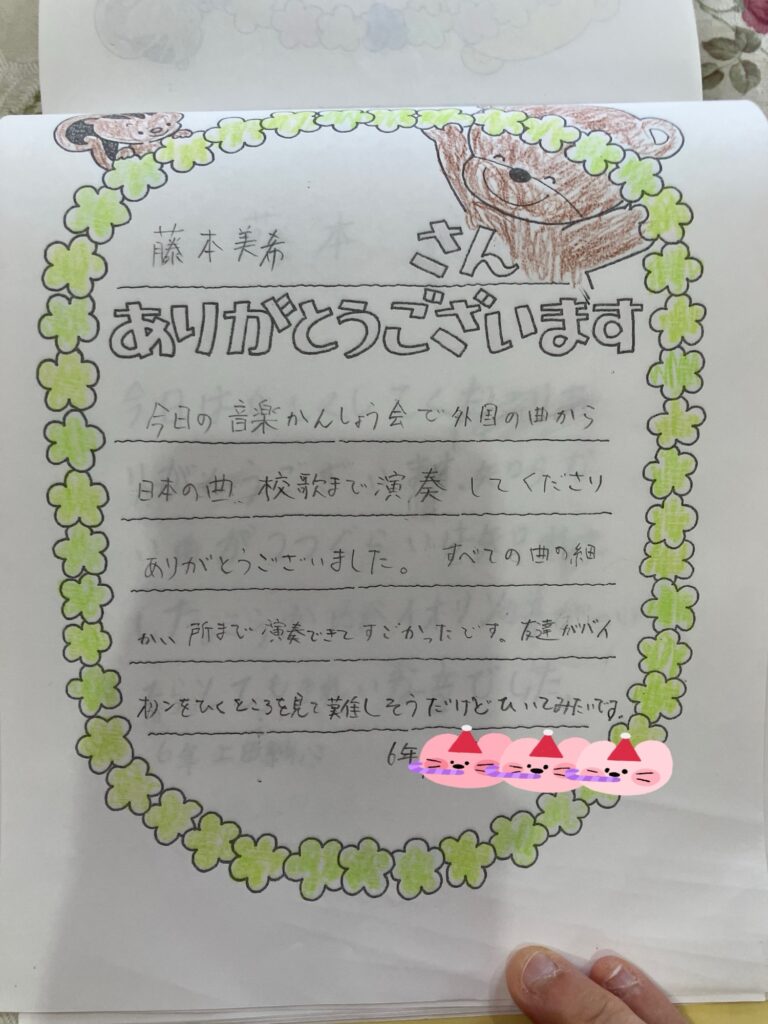 藤本美希
さん
ありがとうございます
今日の音楽かんしょう会で外国の曲から
日本の曲、校歌まで演奏してくださり
ありがとうございました。すべての曲の細
かい所まで演奏できてすごかったです。友達がバイ
オリンをひくところを見て難しそうだけどひいてみたいです。
6年